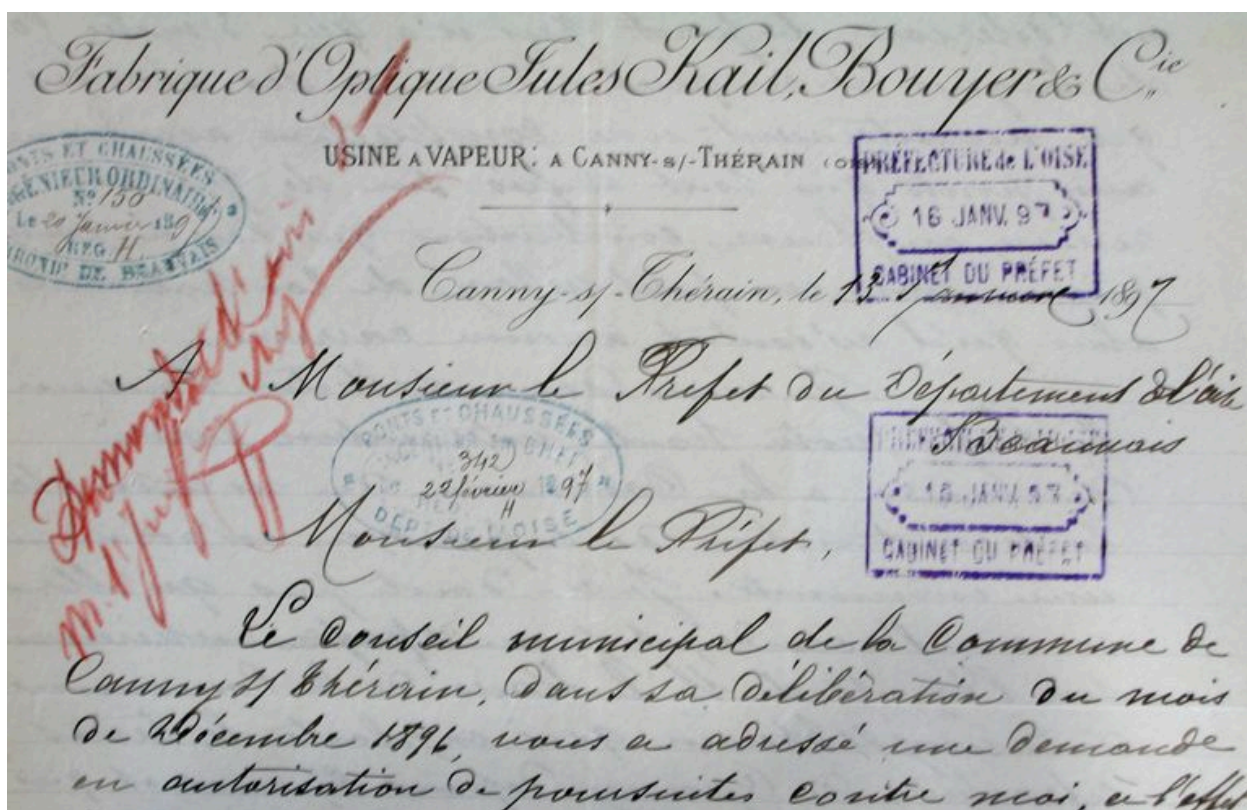 Fabrique d'Optique Jules Kail, Bouyer & Cie
USINE A VAPEUR: A CANNY-s/-THÉRAIN (OISE)
PONTS ET CHAUSSÉES
INGÉNIEUR ORDINAIRE
No 150
Le 20 Janvier 1897
REG. H
ARRONDt DE BEAUVAIS
PRÉFECTURE de L'OISE
16 JANV. 97
CABINET DU PRÉFET
Canny-s/-Thérain, le 13 Janvier 1897
A Monsieur le Préfet du Département de l'Oise
à Beauvais
PONTS ET CHAUSSÉES
342
22 février 1897
H
DÉPt DE L'OISE
PRÉFECTURE de L'OISE
16 JANV. 97
CABINET DU PRÉFET
Monsieur le Préfet,
Le Conseil municipal de la Commune de
Canny s/ Thérain, dans sa délibération du mois
de Décembre 1896, vous a adressé une demande
en autorisation de poursuites contre moi, à l'effet